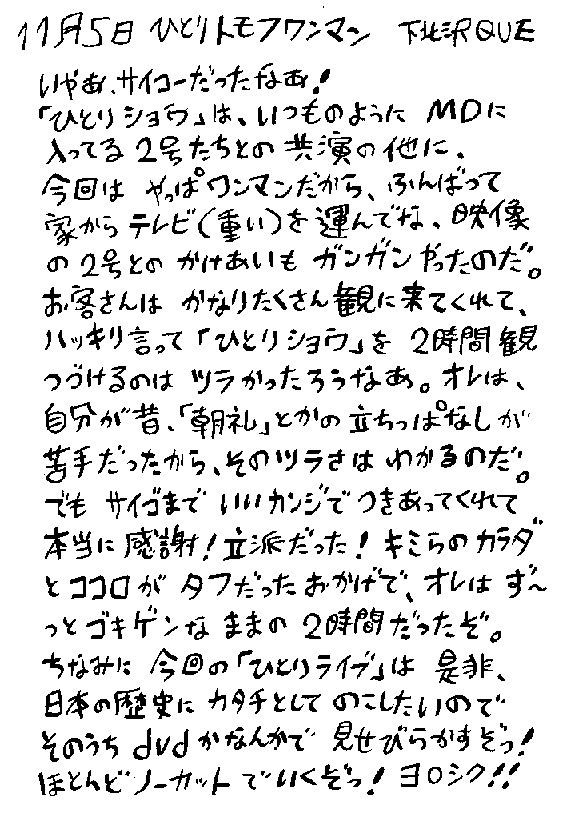 11月5日 ひとりトモフワンマン 下北沢QUE
いやぁ、サイコーだったなぁ!
「ひとりショウ」は、いつものように MDに
入ってる 2号たちとの 共演の他に、
今回は やっぱワンマンだから、ふんばって
家から テレビ(重い)を 運んでな、映像
の 2号との かけあいも ガンガン やったのだ。
お客さんは かなりたくさん 観に来てくれて、
ハッキリ言って 「ひとりショウ」を 2時間観
つづけるのは ツラかったろうなぁ。オレは、
自分が昔、「朝礼」とかの 立ちっぱなしが
苦手だったから、そのツラさは わかるのだ。
でも サイゴまで いいカンジで つきあってくれて
本当に 感謝! 立派だった! キミらの カラダ
とココロが タフだったおかげで、オレは ず〜
っとゴキゲンな ままの 2時間だったぞ。
ちなみに 今回の「ひとりライブ」は 是非、
日本の歴史に カタチとして のこしたいので
そのうち dvdかなんかで 見せびらかすぞっ!
ほとんどノーカット でいくぞっ! ヨロシク!!